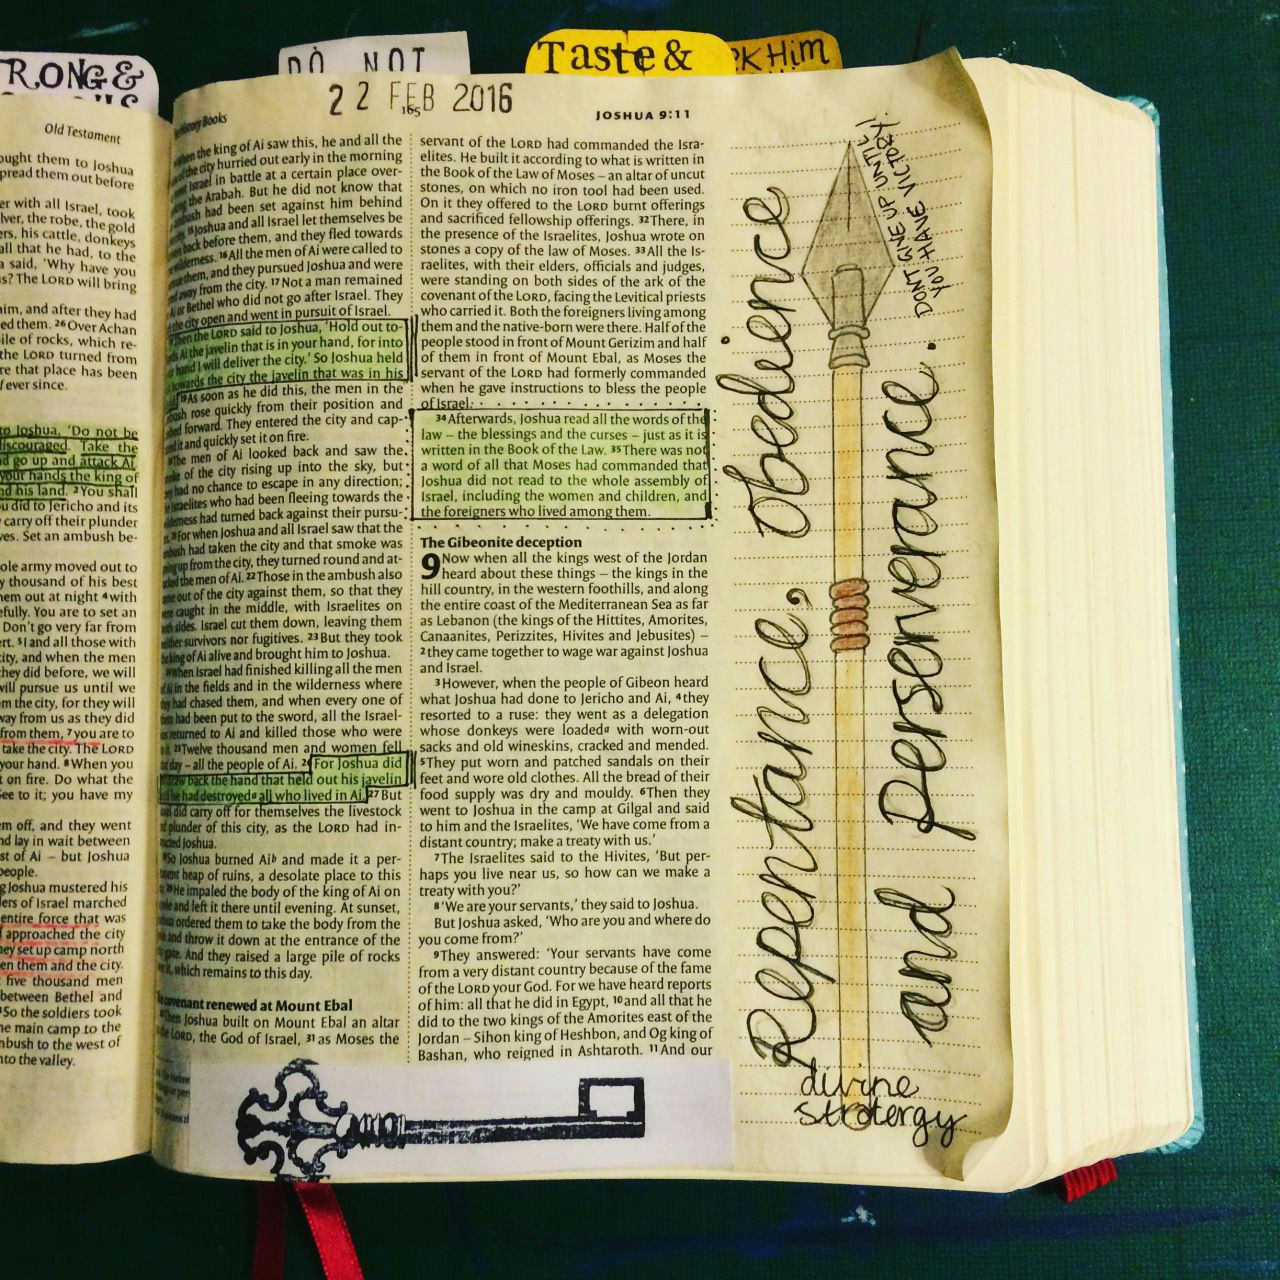 RONG &
DO NOT
Taste &
EK HIM
22 FEB 2016
165
History Books
JOSHUA 9:11
Old Testament
ought them to Joshua
pread them out before
er with all Israel, took
lver, the robe, the gold
ers, his cattle, donkeys
all that he had, to the
a said, 'Why have you
s? The LORD will bring
him, and after they had
ed them. 26 Over Achan
pile of rocks, which re-
the LORD turned from
re that place has been
ever since.
to Joshua, 'Do not be
discouraged. Take the
nd go up and attack Ai.
your hands the king of
nd his land. 2 You shall
u did to Jericho and its
carry off their plunder
ves. Set an ambush be-
ole army moved out to
y thousand of his best
hem out at night 4 with
efully. You are to set an
Don't go very far from
ert. 5 I and all those with
city, and when the men
they did before, we will
will pursue us until we
m the city, for they will
way from us as they did
from them, 7 you are to
take the city. The LORD
your hand. 8 When you
t on fire. Do what the
See to it; you have my
em off, and they went
nd lay in wait between
st of Ai – but Joshua
people.
g Joshua mustered his
ers of Israel marched
entire force that was
approached the city
hey set up camp north
en them and the city.
five thousand men
between Bethel and
So the soldiers took
he main camp to the
mbush to the west of
nto the valley.
When the king of Ai saw this, he and all the
of the city hurried out early in the morning
Israel in battle at a certain place over-
the Arabah. But he did not know that
ambush had been set against him behind
city. 15 Joshua and all Israel let themselves be
back before them, and they fled towards
wilderness. 16 All the men of Ai were called to
pursue them, and they pursued Joshua and were
lured away from the city. 17 Not a man remained
Ai or Bethel who did not go after Israel. They
the city open and went in pursuit of Israel.
Then the LORD said to Joshua, 'Hold out to-
ds Ai the javelin that is in your hand, for into
hand I will deliver the city.' So Joshua held
towards the city the javelin that was in his
19 As soon as he did this, the men in the
bush rose quickly from their position and
forward. They entered the city and cap-
d it and quickly set it on fire.
The men of Ai looked back and saw the
of the city rising up into the sky, but
had no chance to escape in any direction;
Israelites who had been fleeing towards the
wilderness had turned back against their pursu-
For when Joshua and all Israel saw that the
ambush had taken the city and that smoke was
going up from the city, they turned round and at-
the men of Ai. 22 Those in the ambush also
out of the city against them, so that they
were caught in the middle, with Israelites on
both sides. Israel cut them down, leaving them
neither survivors nor fugitives. 23 But they took
the king of Ai alive and brought him to Joshua.
When Israel had finished killing all the men
of Ai in the fields and in the wilderness where
they had chased them, and when every one of
them had been put to the sword, all the Israel-
returned to Ai and killed those who were
in it. 25 Twelve thousand men and women fell
day – all the people of Ai. 26 For Joshua did
draw back the hand that held out his javelin
he had destroyed a all who lived in Ai. 27 But
did carry off for themselves the livestock
plunder of this city, as the LORD had in-
Joshua.
So Joshua burned Ai b and made it a per-
heap of ruins, a desolate place to this
He impaled the body of the king of Ai on
and left it there until evening. At sunset,
Joshua ordered them to take the body from the
and throw it down at the entrance of the
gate. And they raised a large pile of rocks
it, which remains to this day.
covenant renewed at Mount Ebal
Then Joshua built on Mount Ebal an altar
LORD, the God of Israel, 31 as Moses the
servant of the LORD had commanded the Isra-
elites. He built it according to what is written in
the Book of the Law of Moses – an altar of uncut
stones, on which no iron tool had been used.
On it they offered to the LORD burnt offerings
and sacrificed fellowship offerings. 32 There, in
the presence of the Israelites, Joshua wrote on
stones a copy of the law of Moses. 33 All the Is-
raelites, with their elders, officials and judges,
were standing on both sides of the ark of the
covenant of the LORD, facing the Levitical priests
who carried it. Both the foreigners living among
them and the native-born were there. Half of the
people stood in front of Mount Gerizim and half
of them in front of Mount Ebal, as Moses the
servant of the LORD had formerly commanded
when he gave instructions to bless the people
of Israel.
34 Afterwards, Joshua read all the words of the
law – the blessings and the curses – just as it is
written in the Book of the Law. 35 There was not
a word of all that Moses had commanded that
Joshua did not read to the whole assembly of
Israel, including the women and children, and
the foreigners who lived among them.
The Gibeonite deception
9 Now when all the kings west of the Jordan
heard about these things – the kings in the
hill country, in the western foothills, and along
the entire coast of the Mediterranean Sea as far
as Lebanon (the kings of the Hittites, Amorites,
Canaanites, Perizzites, Hivites and Jebusites) –
2 they came together to wage war against Joshua
and Israel.
3 However, when the people of Gibeon heard
what Joshua had done to Jericho and Ai, 4 they
resorted to a ruse: they went as a delegation
whose donkeys were loaded a with worn-out
sacks and old wineskins, cracked and mended.
5 They put worn and patched sandals on their
feet and wore old clothes. All the bread of their
food supply was dry and mouldy. 6 Then they
went to Joshua in the camp at Gilgal and said
to him and the Israelites, 'We have come from a
distant country; make a treaty with us.'
7 The Israelites said to the Hivites, 'But per-
haps you live near us, so how can we make a
treaty with you?'
8 'We are your servants,' they said to Joshua.
But Joshua asked, 'Who are you and where do
you come from?'
9 They answered: 'Your servants have come
from a very distant country because of the fame
of the LORD your God. For we have heard reports
of him: all that he did in Egypt, 10 and all that he
did to the two kings of the Amorites east of the
Jordan – Sihon king of Heshbon, and Og king of
Bashan, who reigned in Ashtaroth. 11 And our
Repentance, obedience
and perserverance.
DON'T GIVE UP UNTIL
YOU HAVE VICTORY!
divine
stratergy